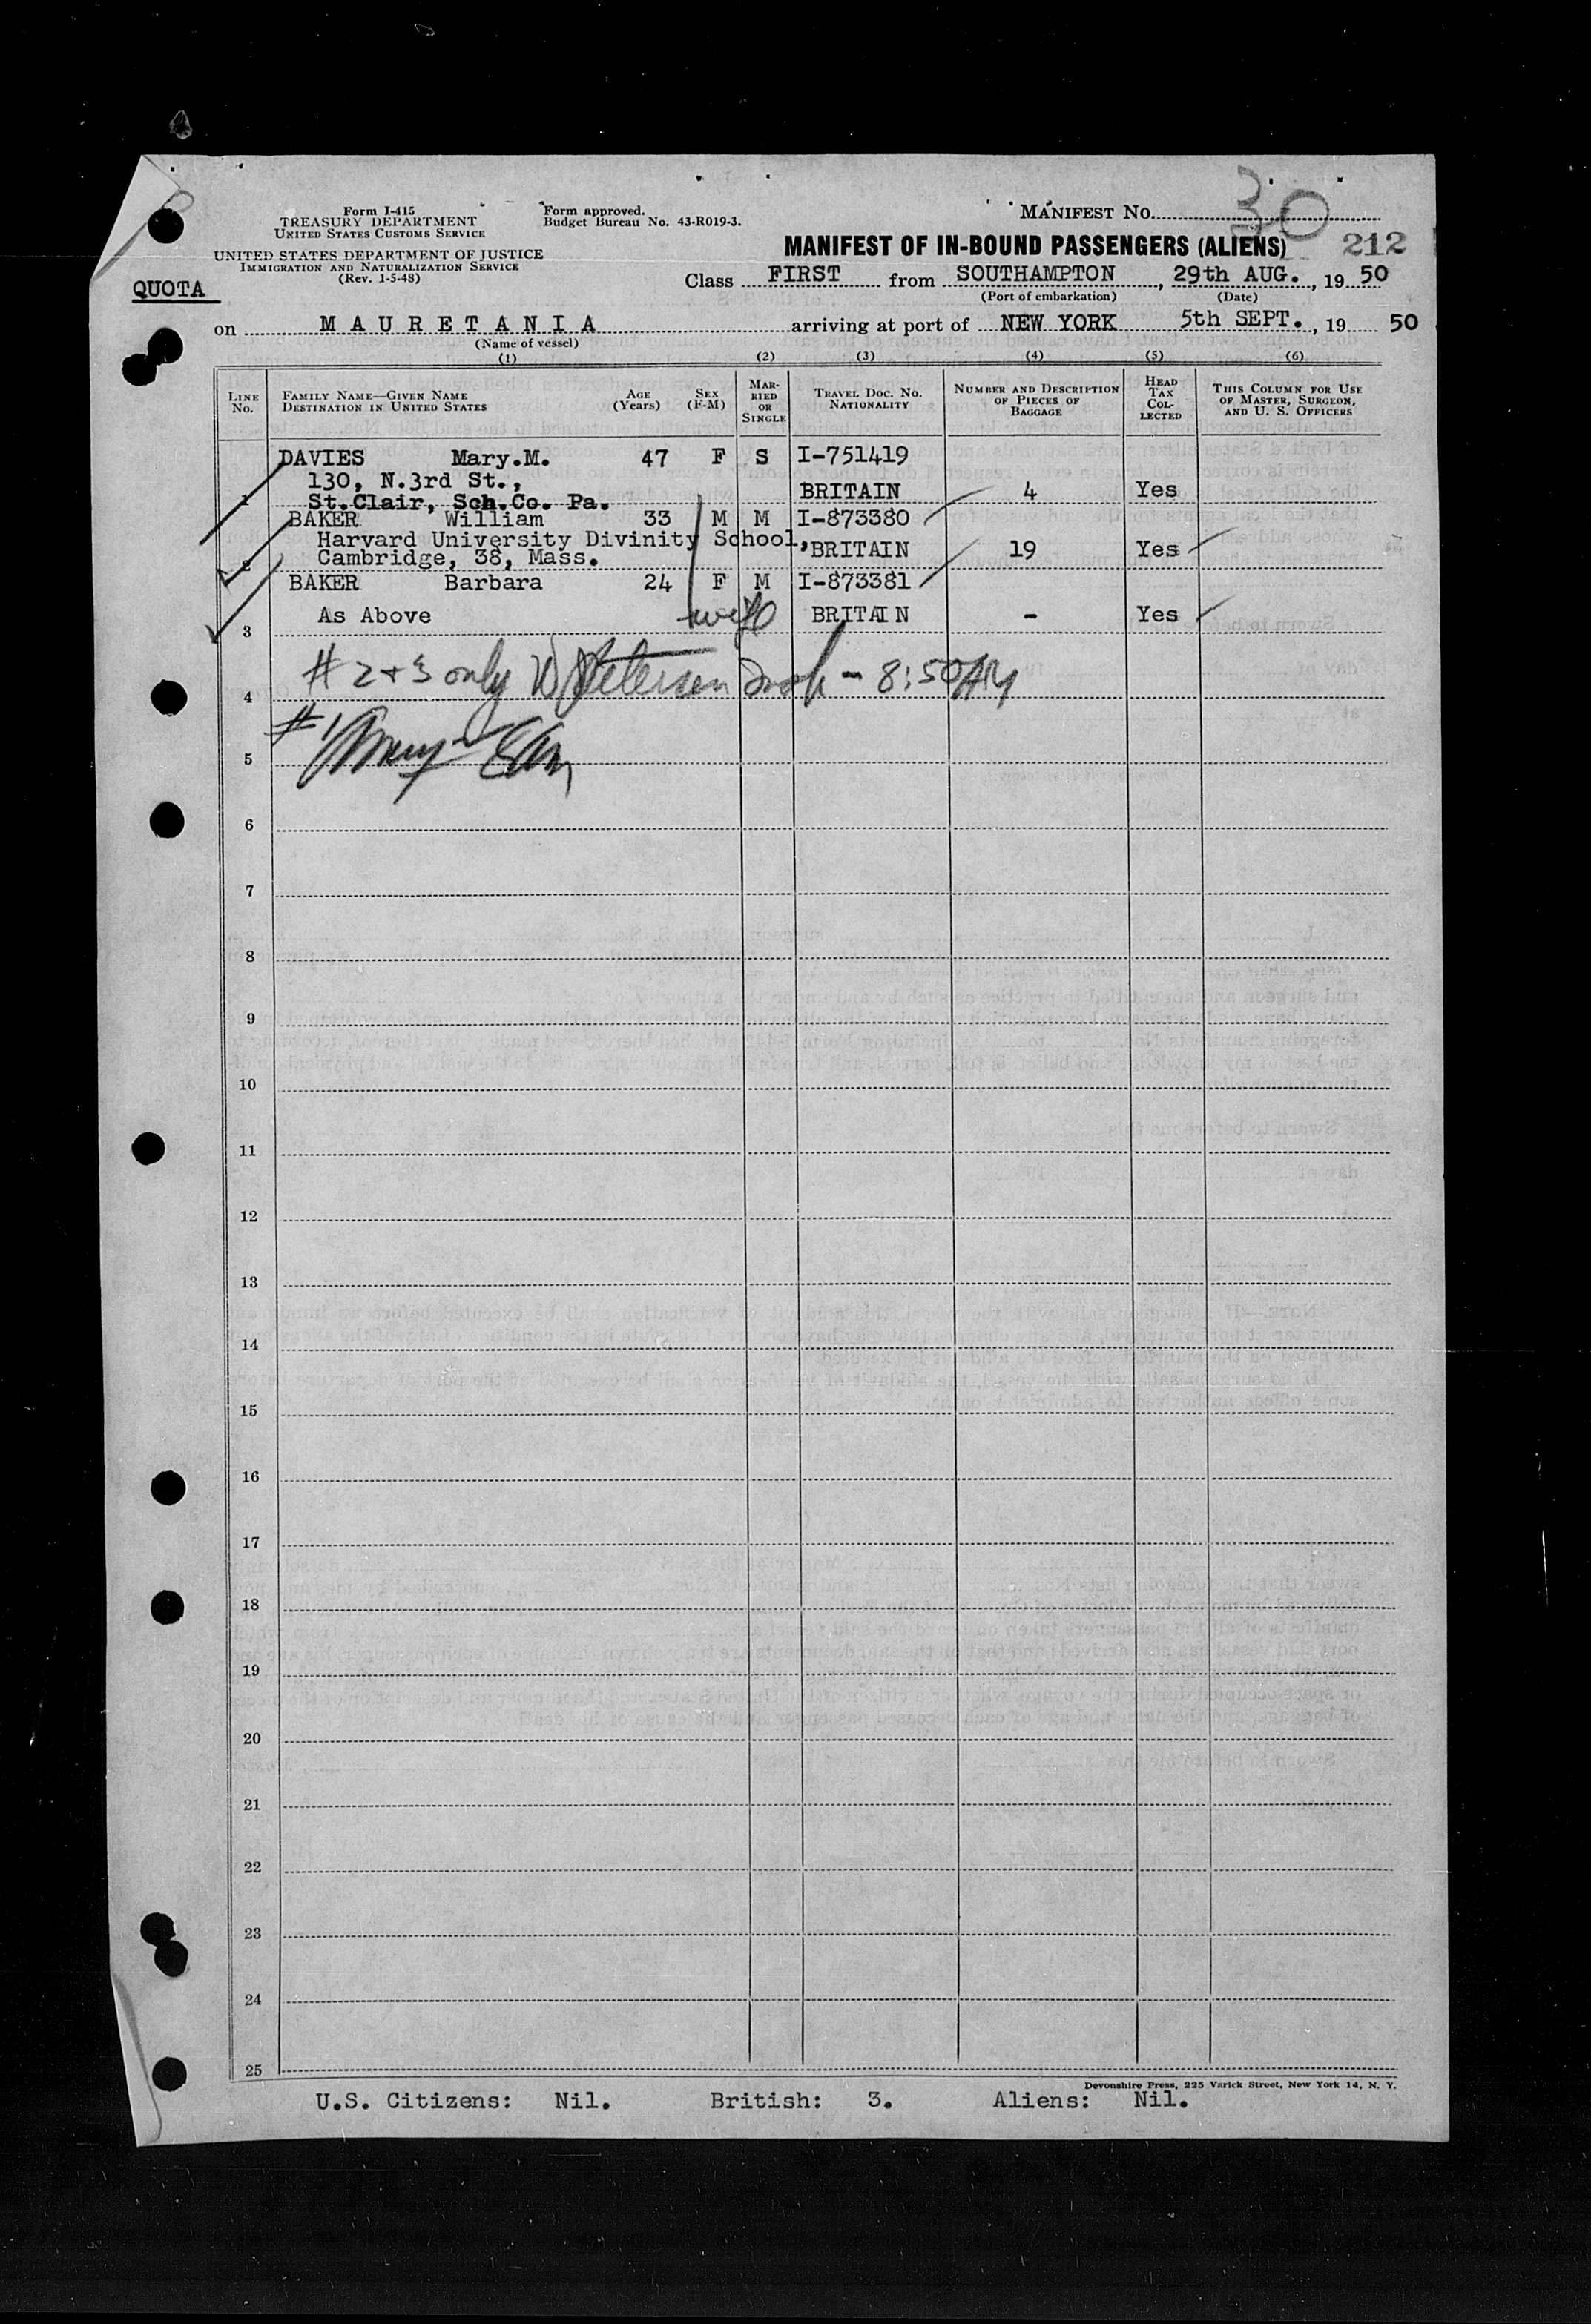 30
Form I-415
TREASURY DEPARTMENT
UNITED STATES CUSTOMS SERVICE
Form approved.
Budget Bureau No. 43-R019-3.
MANIFEST NO.
UNITED STATES DEPARTMENT OF JUSTICE
IMMIGRATION AND NATURALIZATION SERVICE
(Rev. 1-5-48)
MANIFEST OF IN-BOUND PASSENGERS (ALIENS) 212
QUOTA
Class FIRST from SOUTHAMPTON, 29th AUG., 19 50
(Port of embarkation) (Date)
on MAURETANIA arriving at port of NEW YORK 5th SEPT., 19 50
(Name of vessel)
(1) (2) (3) (4) (5) (6)
LINE No. FAMILY NAME—GIVEN NAME DESTINATION IN UNITED STATES AGE (Years) SEX (F-M) MARRIED OR SINGLE TRAVEL DOC. NO. NATIONALITY NUMBER AND DESCRIPTION OF PIECES OF BAGGAGE HEAD TAX COLLECTED THIS COLUMN FOR USE OF MASTER, SURGEON, AND U. S. OFFICERS
DAVIES Mary.M. 47 F S I-751419
130, N.3rd St.,
1 St.Clair, Sch.Co. Pa. BRITAIN 4 Yes
BAKER William 33 M M I-873380
Harvard University Divinity School,
2 Cambridge, 38, Mass. BRITAIN 19 Yes
BAKER Barbara 24 F M I-873381
3 As Above wife BRITAIN - Yes
# 2 + 3 only Petersen - 8:50 AM
4
#1
5
6
7
8
9
10
11
12
13
14
15
16
17
18
19
20
21
22
23
24
25
Devonshire Press, 225 Varick Street, New York 14, N. Y.
U.S. Citizens: Nil. British: 3. Aliens: Nil.